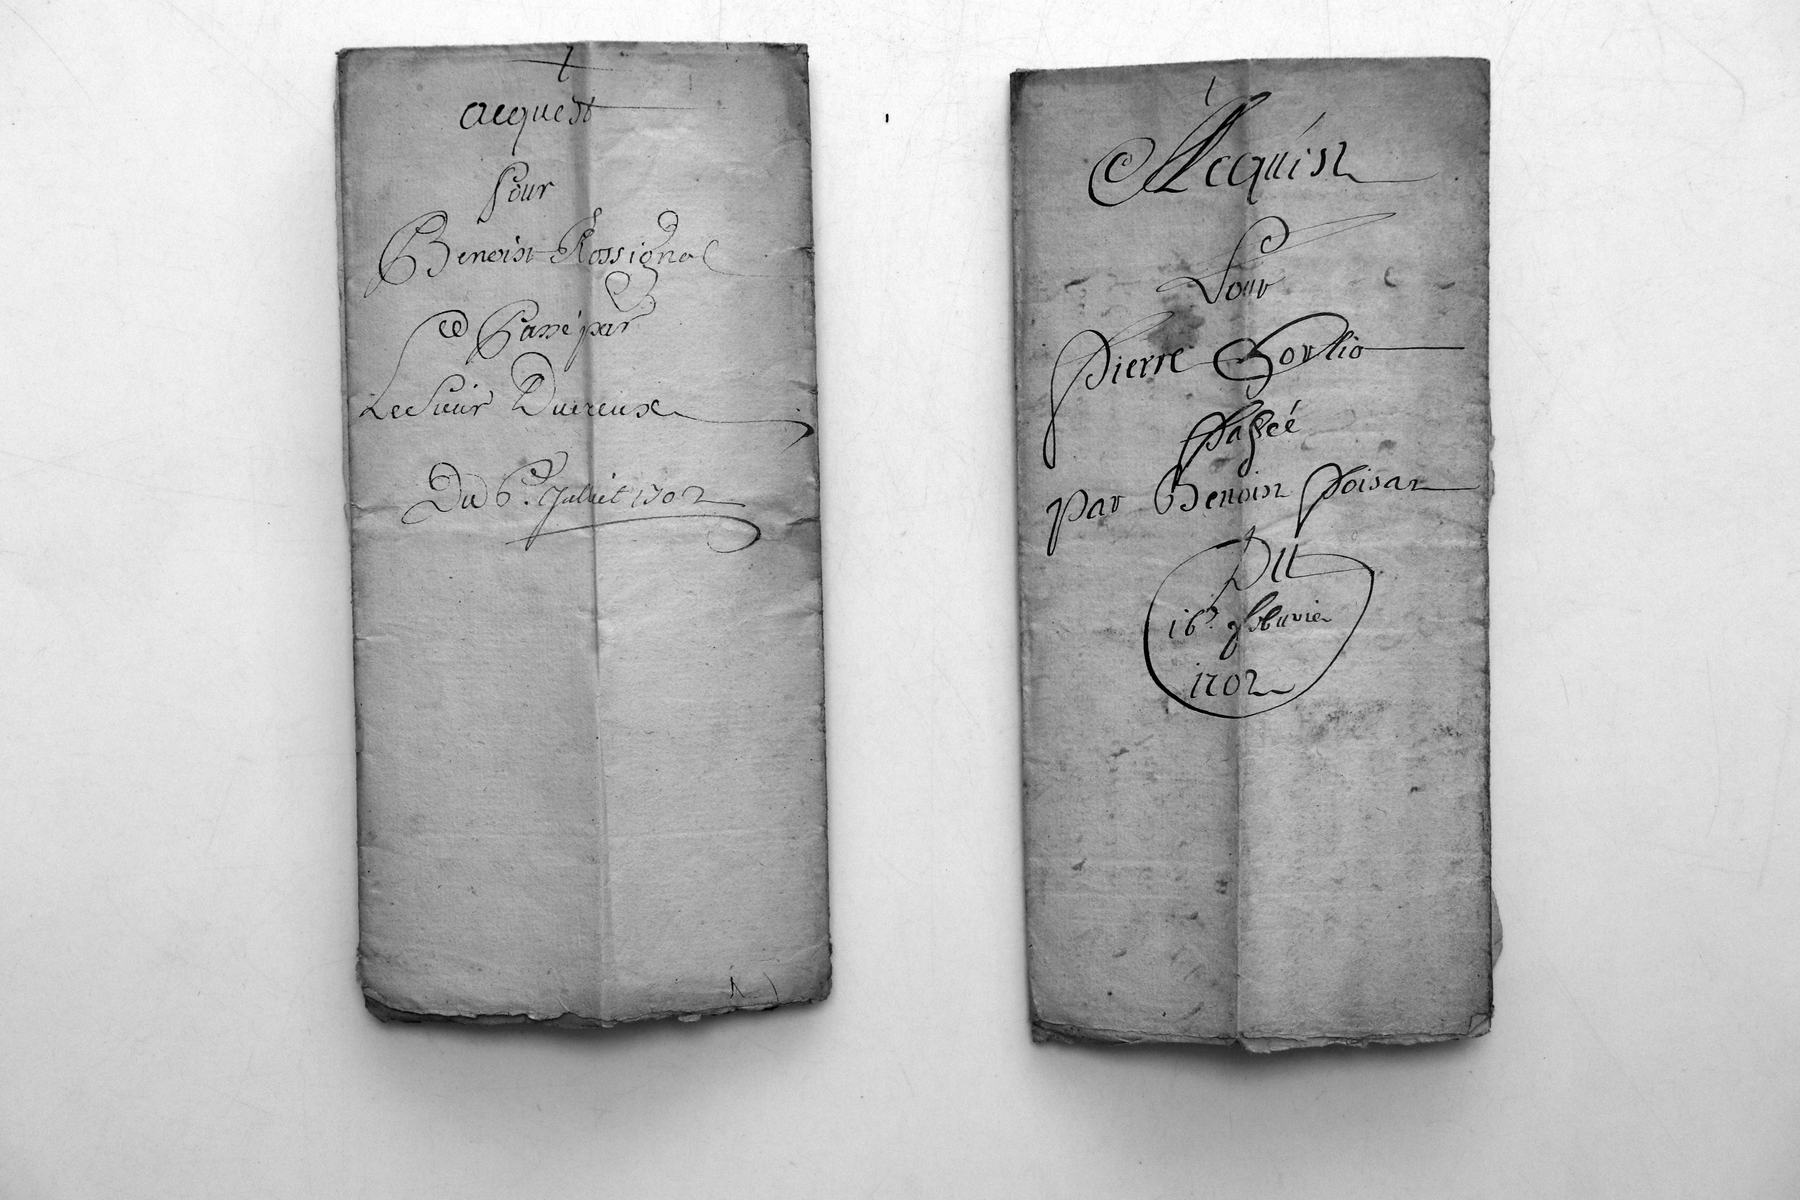 acquest
pour
Benoist Rossignol
passé par
Le Sieur
Du 6e. Juillet 1702
Acquist
Pour
Pierre
Passée
par Benoist Poisat
Du
16e. febuvrier
1702